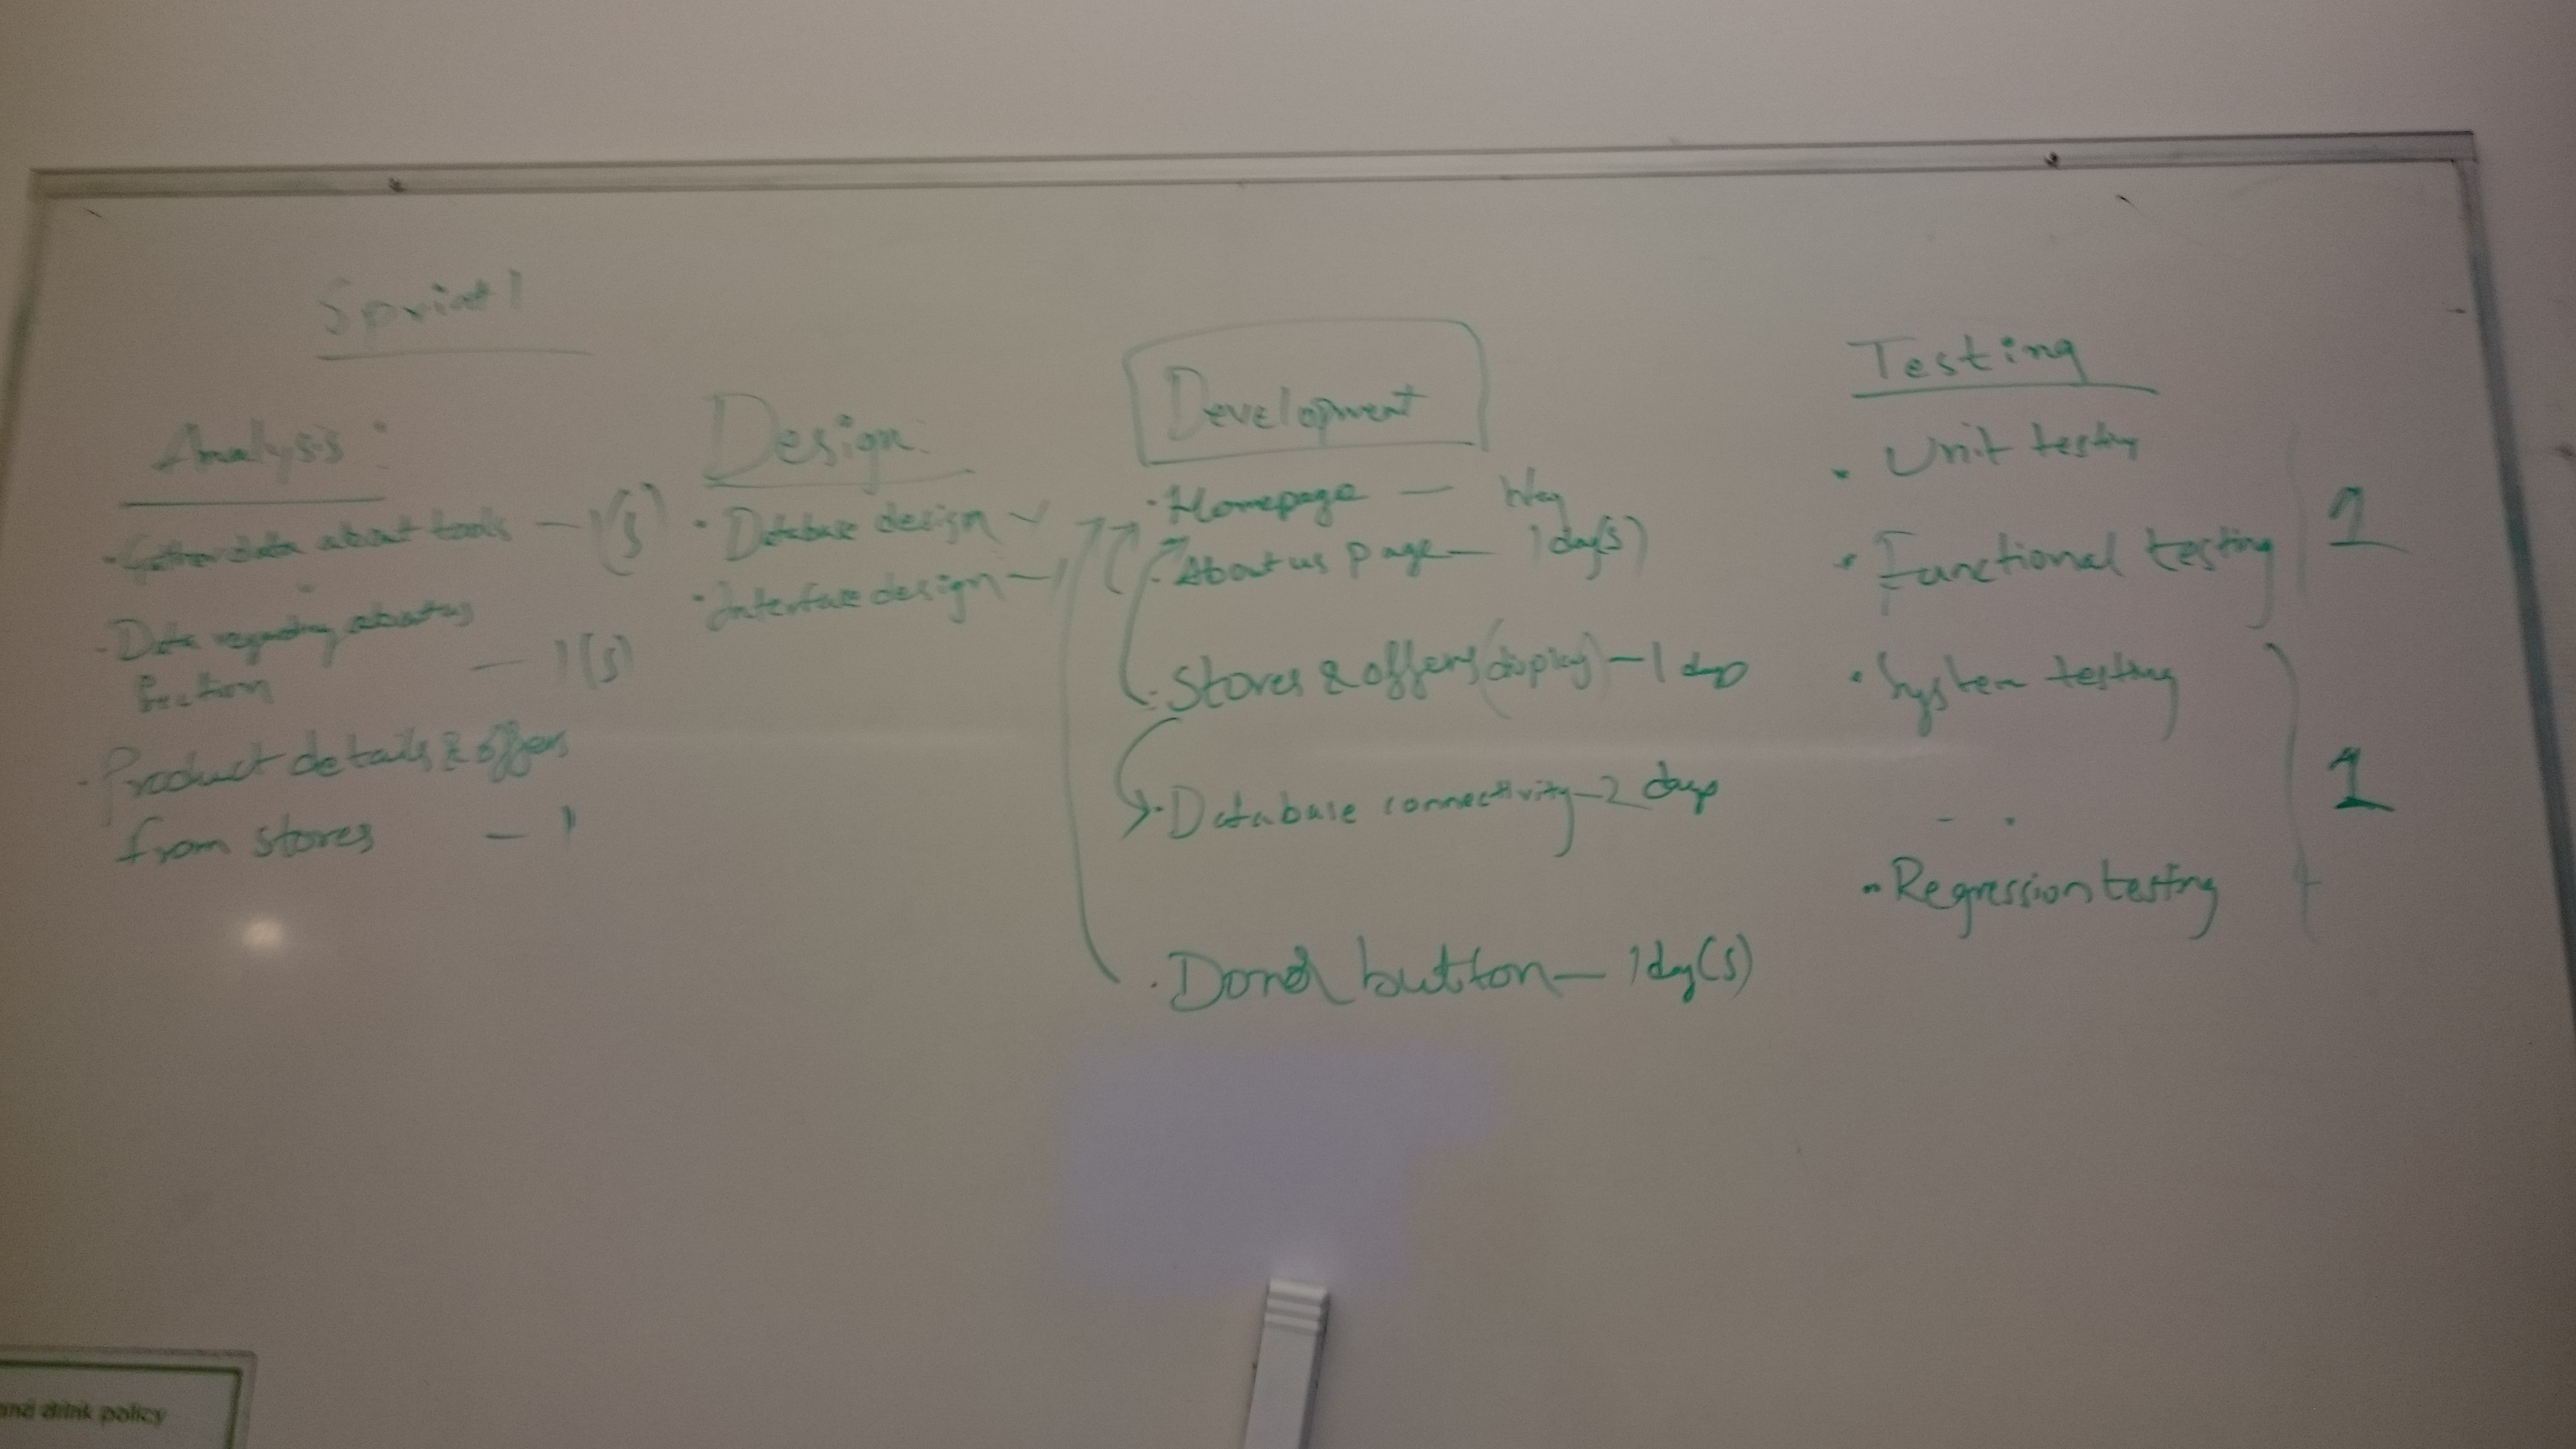 Sprint 1
Analysis:
· Gather data about tools — 1(s)
· Data regarding about us
Section — 1(s)
· Product details & offers
from stores — 1
Design:
· Database design —
· Interface design — 1
Development
· Homepage —
· About us page — 1 day(s)
· Stores & offers (display) — 1 day
· Database connectivity — 2 days
· button — 1 day(s)
Testing
· Unit testing
· Functional testing
1
· System testing
· Regression testing
1
and drink policy